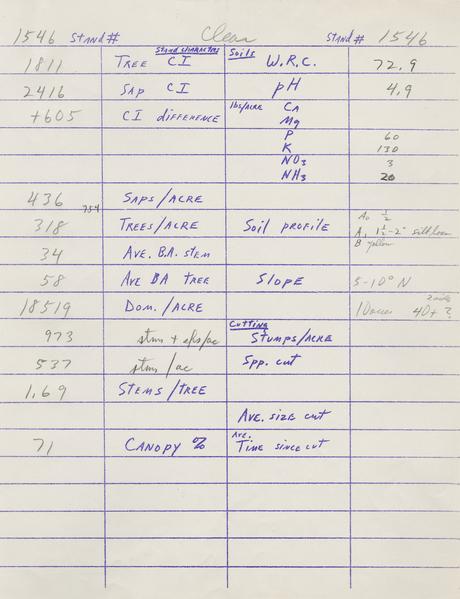 1546 Stand # Clear Stand # 1546
Stand characters Soils
1811 Tree CI W.R.C. 72.9
2416 Sap CI pH 4.9
+605 CI difference lbs/acre Ca
Mg
P 60
K 130
NO3 3
NH3 20
436 Saps/acre
754
318 Trees/acre Soil profile A0 1/2
A1 1½-2" silt loam
B yellow
34 Ave. B.A. stem
58 Ave BA tree Slope 5-10° N
18519 Dom./acre 10 acres 40+ ?
Cutting
973 stms + slps/ac Stumps/acre
537 stms/ac Spp. cut
1.69 Stems/tree
Ave. size cut
71 Canopy % Ave. Time since cut